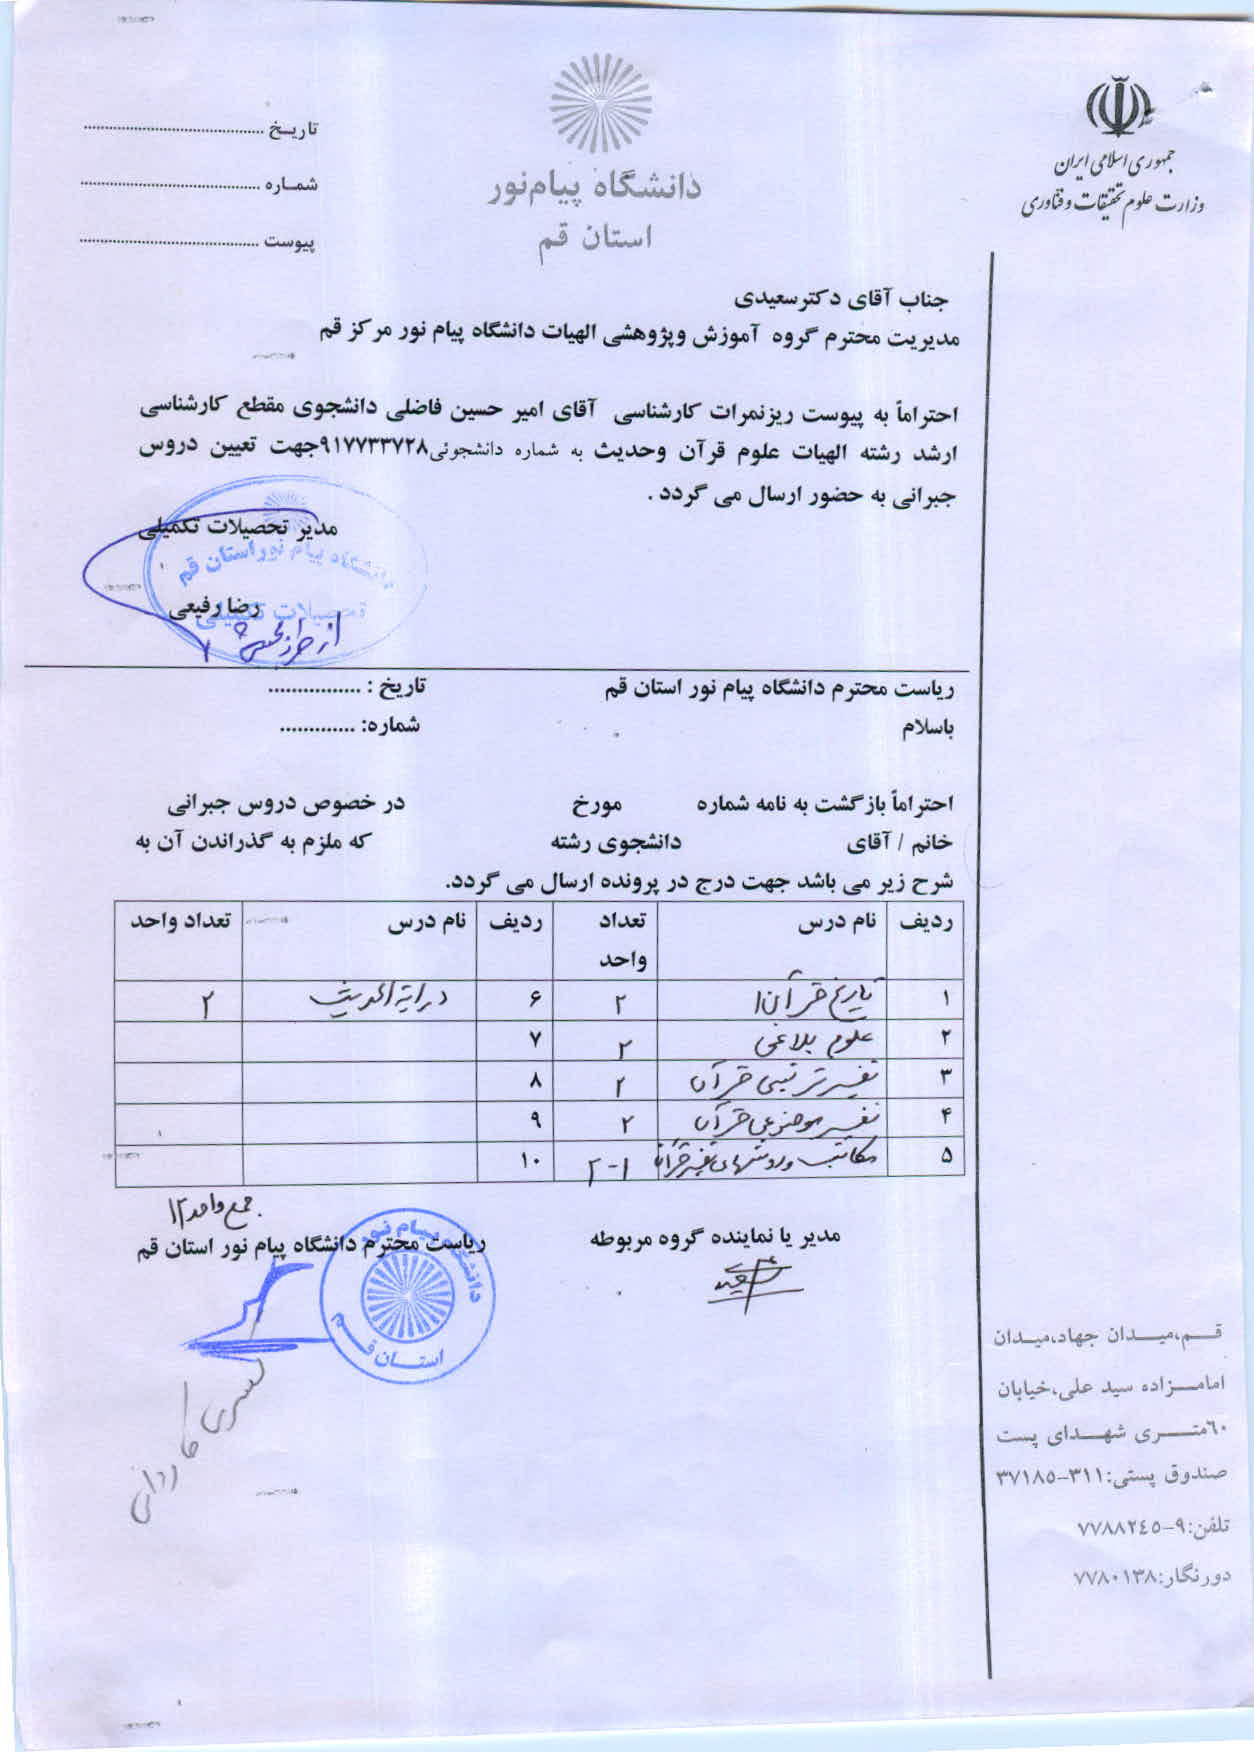 جمهوری اسلامی ایران
وزارت علوم تحقیقات و فناوری
دانشگاه پیام‌نور
استان قم
تاریـخ ........................................
شمـاره ........................................
پیوست ........................................
جناب آقای دکترسعیدی
مدیریت محترم گروه آموزش وپژوهشی الهیات دانشگاه پیام نور مرکز قم
احتراماً به پیوست ریزنمرات کارشناسی آقای امیر حسین فاضلی دانشجوی مقطع کارشناسی
ارشد رشته الهیات علوم قرآن وحدیث به شماره دانشجوئی۹۱۷۷۳۳۷۲۸جهت تعیین دروس
جبرانی به حضور ارسال می گردد .
مدیر تحصیلات تکمیلی
دانشگاه پیام نور استان قم
تحصیلات تکمیلی
رضا رفیعی
از طرف
ریاست محترم دانشگاه پیام نور استان قم تاریخ : ................
باسلام شماره: .............
احتراماً بازگشت به نامه شماره مورخ در خصوص دروس جبرانی
خانم / آقای دانشجوی رشته که ملزم به گذراندن آن به
شرح زیر می باشد جهت درج در پرونده ارسال می گردد.
ردیف نام درس تعداد واحد ردیف نام درس تعداد واحد
۱ تاریخ قرآن۱ ۲ ۶ درایة الحدیث ۲
۲ علوم بلاغی ۲ ۷
۳ تفسیر ترتیبی قرآن ۲ ۸
۴ تفسیر موضوعی قرآن ۲ ۹
۵ مکاتب و روشهای تفسیر قرآن ۱-۲ ۱۰
جمع واحد ۱۲
مدیر یا نماینده گروه مربوطه ریاست محترم دانشگاه پیام نور استان قم
دانشگاه پیام نور
استـان قـم
قــم،میــدان جهاد،میـدان
امامــزاده سید علی،خیابان
٦٠متـــری شهــدای پست
صندوق پستی:۳۱۱-۳۷۱۸۵
تلفن:۹-۷۷۸۸۲٤٥
دورنگار:۷۷۸۰۱۳۸